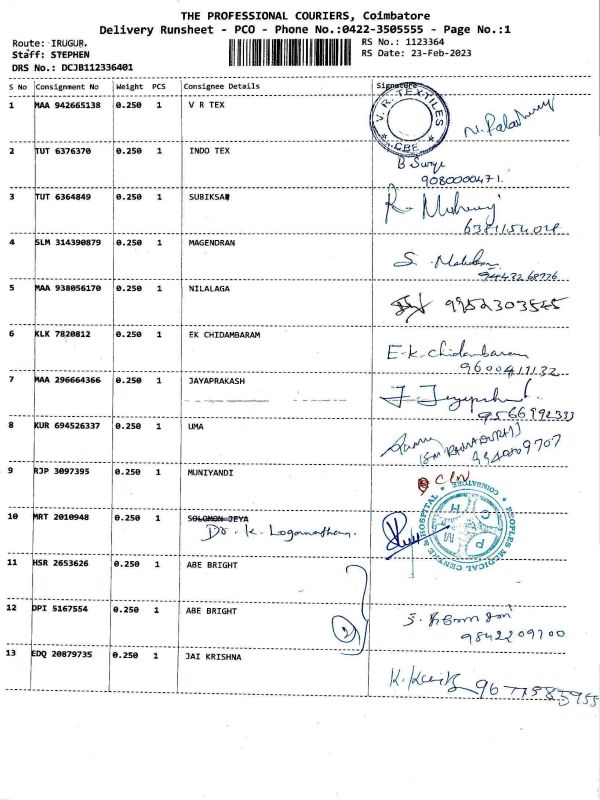 THE PROFESSIONAL COURIERS, Coimbatore
Delivery Runsheet - PCO - Phone No.:0422-3505555 - Page No.:1
Route: IRUGUR, RS No.: 1123364
Staff: STEPHEN RS Date: 23-Feb-2023
DRS No.: DCJB112336401
S No Consignment No Weight PCS Consignee Details Signature
1 MAA 942665138 0.250 1 V R TEX
V. R. TEXTILES
* CBE *
2 TUT 6376370 0.250 1 INDO TEX
B Surya
9080000471.
3 TUT 6364849 0.250 1 SUBIKSAR
R.
4 SLM 314390879 0.250 1 MAGENDRAN
S.
5 MAA 938056170 0.250 1 NILALAGA
9952303545
6 KLK 7820812 0.250 1 EK CHIDAMBARAM
E.K. Chidambaram
9600411132
7 MAA 296664366 0.250 1 JAYAPRAKASH
9566992333
8 KUR 694526337 0.250 1 UMA
9 RJP 3097395 0.250 1 MUNIYANDI
10 MRT 2010948 0.250 1 SOLOMON JEYA
Dr. K. Loganathan.
PEOPLES MEDICAL CENTRE & HOSPITAL * COIMBATORE *
P M C H
11 HSR 2653626 0.250 1 ABE BRIGHT
12 DPI 5167554 0.250 1 ABE BRIGHT
2
9842209700
13 EDQ 20879735 0.250 1 JAI KRISHNA
K.